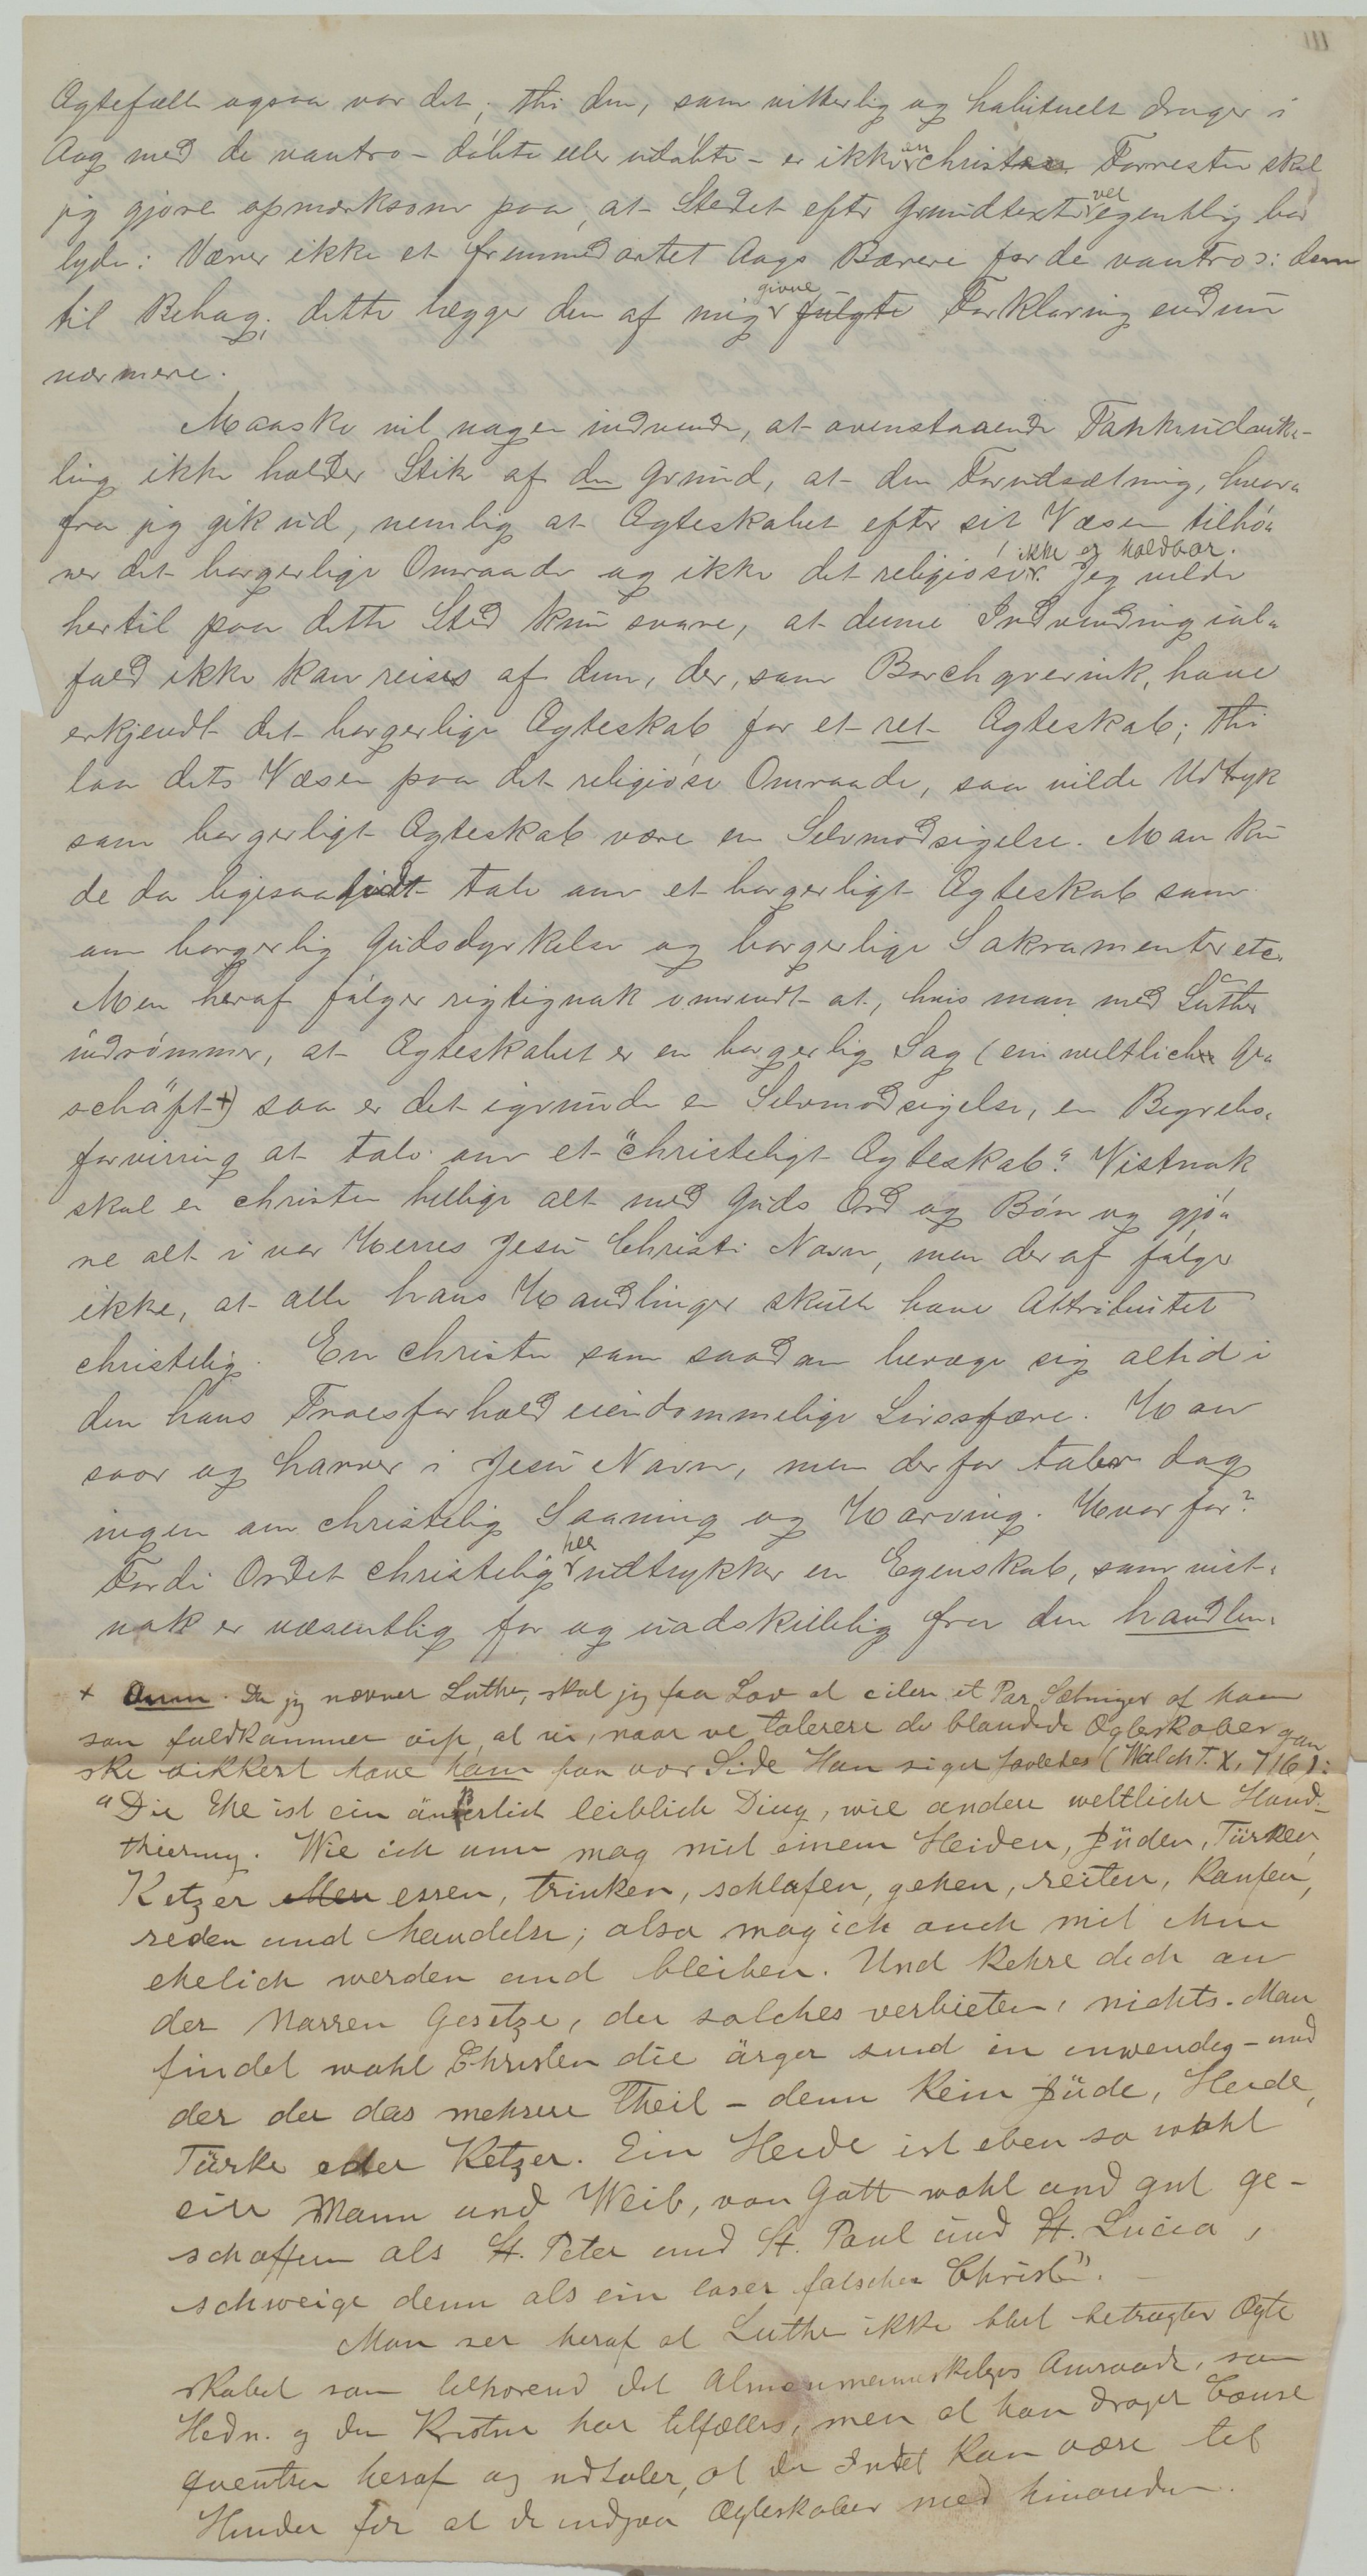 III
Ægtefælle ogsaa var det; thi den, som vitterlig og habituelt drager i
Aag med de vantro – døbte eller udøbte – er ikke en christen. Forresten skal
jeg gjøre opmærksom paa, at Stedet efter Grundtexten vel egentlig bør
lyde: Værer ikke et fremmedartet Aags Bærere for de vantro ɔ: dem
til Behag; dette lægger den af mig givne fulgte Forklaring endnu
nærmere.
Maaske vil nogen indvende, at ovenstaaende Tankeudvik-
ling ikke holder Stik af den Grund, at den Forudsætning, hvor-
fra jeg gik ud, nemlig at Ægteskabet efter sit Væsen tilhø-
rer det borgerlige Omraade og ikke det religiøse, ikke er holdbar. Jeg vilde
hertil paa dette Sted kun svare, at denne Indvending ial-
fald ikke kan reises af dem, der, som Borchgrevink, have
erkjendt det borgerlige Ægteskab for et ret Ægteskab; thi
laa dets Væsen paa det religiøse Omraade, saa vilde Udtryk
som borgerligt Ægteskab være en Selvmodsigelse. Man kun
de da ligesaa godt tale om et borgerligt Ægteskab som
om borgerlig Gudsdyrkelse og borgerlige Sakramenter etc.
Men heraf følger rigtignok omvendt at, hvis man med Luther
indrømmer, at Ægteskabet er en borgerlig Sag (ein weltlich Ge-
schäft +) saa er det igrunden en Selvmodsigelse, en Begrebs-
forvirring at tale om et "christeligt Ægteskab". Vistnok
skal en christen hellige alt med Guds Ord og Bøn og gjø-
re alt i vor Herres Jesu Christi Navn, men deraf følger
ikke, at alle hans Handlinger skulle have Attributet
christelig. En christen som saadan bevæge sig altid i
den hans Troesforhold eiendommelige Livssfære. Han
saar og harver i Jesu Navn, men derfor taler dog
ingen om christelig Saaning og Harving. Hvorfor?
Fordi Ordet christelig her udtrykker en Egenskab, som vist-
nok er væsentlig for og uadskillelig fra den handlen-
+ Anm. Da jeg nævner Luther, skal jeg faa Lov at citere et Par Sætninger af ham
som fuldkommen viser, at vi, naar vi tolerere de blandede Ægteskaber gan
ske sikkert have ham paa vor Side. Han siger saaledes (Walch T. X, 716):
"Die Ehe ist ein äußerlich leiblich Ding, wie andere weltliche Hand-
thierung. Wie ich nun mag mit einem Heiden, Jüden, Türken,
Ketzer essen, trinken, schlafen, gehen, reiten, kaufen,
reden und handeln; also mag ich auch mit ihm
ehelich werden und bleiben. Und kehre dich an
der Narren Gesetze, die solches verbieten, nichts. Man
findet wohl Christen die ärger sind in inwendig – und
der der das mehrere Theil – denn kein Jüde, Heide,
Türke oder Ketzer. Ein Heide ist eben so wohl
ein Mann und Weib, von Gott wohl und gut ge-
schaffen als St. Peter und St. Paul und St. Lucia,
schweige denn als ein loser falscher Christ". –
Man ser heraf at Luther ikke blot betragter Ægte
skabet som tilhørend det Almenmenneskeliges Omraade, som
Hedn. og den Kristne har tilfælles, men at han drager Conse
qventser heraf og udtaler, at der Intet kan være til
Hinder for at de indgaa Ægteskaber med hinanden.